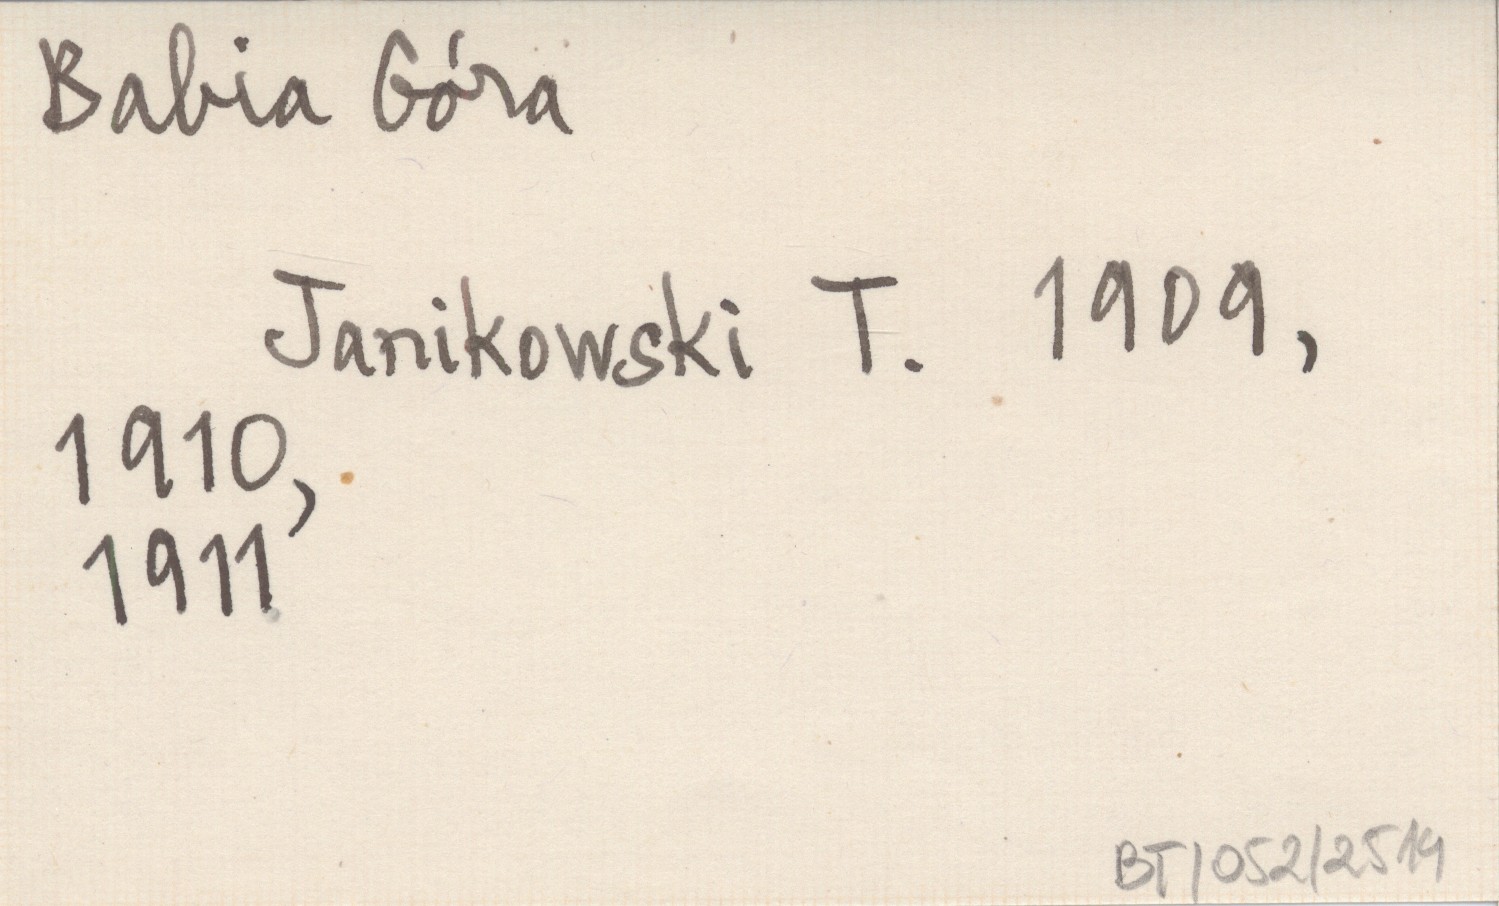 Babia Góra
Janikowski T. 1909,
1910,
1911
BT/052/2514